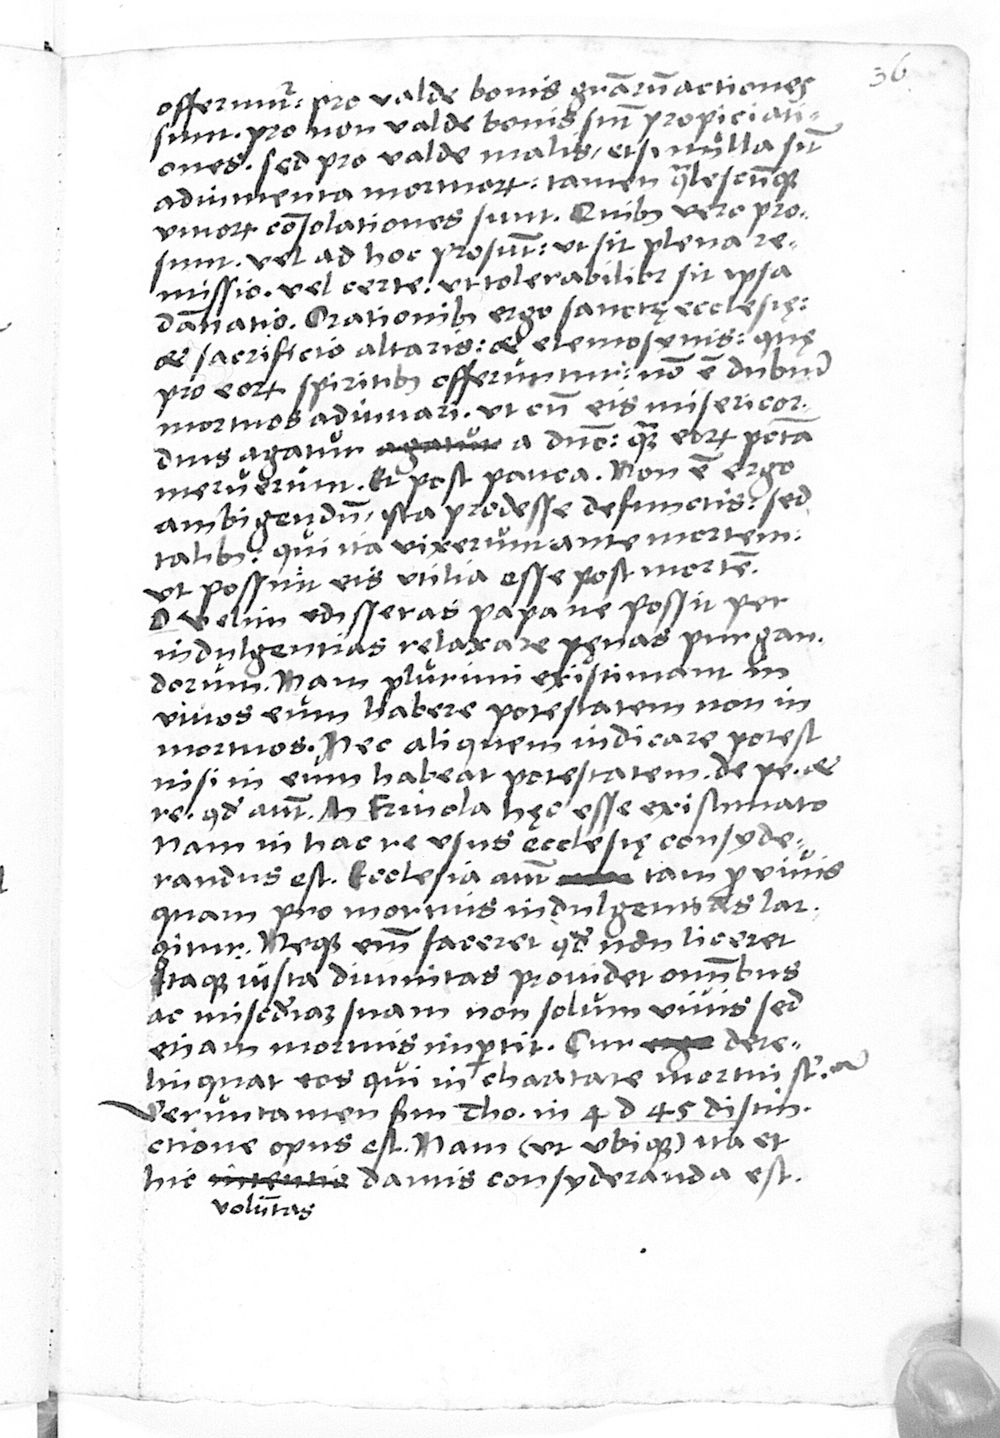 36
offerunt᷑: pro valde bonis gr̄aꝝ actiones
sunt. pro non valde bonis sūt propiciati-
ones. sed pro valde malis, etsi nulla sūt
adiumenta mortuoꝝ: tamen q̄lescūqꝫ
viuoꝝ cōsolationes sunt. Quibꝫ vero pro-
sunt. vel ad hoc prosūt: ut sit plena re-
missio. vel certe: ut tolerabilior sit ipsa
dānatio. Orationibꝫ ergo sanctę ecclesię:
& sacrificio altaris: & elemosenis: quę
pro eoꝝ spiritibꝫ offeruntur: nō ē dubiū
mortuos adiuuari. ut cū eis misericor-
dius agatur agatur a dn̄o: q̄ꝫ eoꝝ pctā
meruerunt. Et post pauca. Non ē ergo
ambigendū, ista prodesse defunctis: sed
talibꝫ: qui ita vixerunt ante mortem:
ut possint eis utilia esse post mortē.
D velim edisseras papa ne possit per
indulgentias relaxare pęnas purgan-
dorum. Nam plurimi existimant in
viuos eum habere potestatem non in
mortuos. Nec aliquem iudicare potest
nisi in eum habeat potestatem. de pe. &
re. qd aūt. M Friuola hęc esse existimato
Nam in hac re usus ecclesię consyde-
randus est. Ecclesia aūt tam ꝓ viuis
quam pro mortuis indulgentias lar-
gitur. Neqꝫ eīm faceret qd non liceret
Itaqꝫ iusta diuinitas prouidet omībus
ac miscdiaꝫ suam non solum viuis sed
etiam mortuis imꝑtit. Cur ergo dere-
linquat eos qui in charitate mortui st̄.
Veruntamen s̄m Tho. in 4 d 45 distin-
ctione opus est. Nam (ut ubiqꝫ) ita et
hic intentio dantis consyderanda est.
volūtas